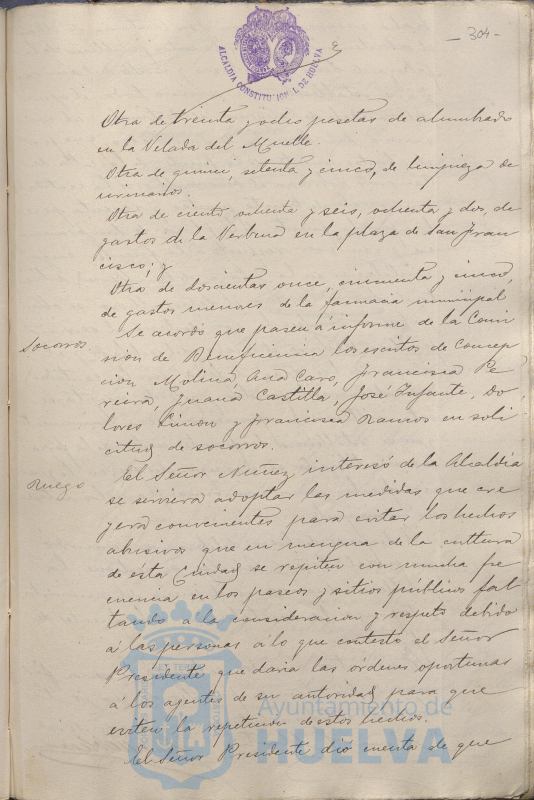 - 304 -
ALCALDIA CONSTITUCIONAL DE HUELVA
Otra de treinta y ocho pesetas de alumbrado
en la Velada del Muelle.
Otra de quince, setenta y cinco, de limpieza de
urinarios.
Otra de ciento ochenta y seis, ochenta y dos, de
gastos de la Verbena en la plaza de San Fran
cisco; y
Otra de doscientas once, cincuenta y cinco,
de gastos menores de la farmacia municipal
Socorros
Se acordó que pasen á informe de la Comi
sion de Beneficencia los escritos de Concep
cion Molina, Ana Caro, Francisca Pe
reira, Juana Castilla, José Infante, Do
lores Limon y Francisca Ramos en soli
citud de socorros.
Ruego
El Señor Nuñez interesó de la Alcaldia
se sirviera adoptar las medidas que cre
yera convenientes para evitar los hechos
abusivos que en mengua de la cultura
de esta Ciudad se repiten con mucha fre
cuencia en los paseos y sitios públicos fal
tando á la consideracion y respeto debido
á las personas á lo que contestó el Señor
Presidente que daria las ordenes oportunas
á los agentes de su autoridad para que
eviten la repeticion de estos hechos.
El Señor Presidente dió cuenta de que
Ayuntamiento de
HUELVA